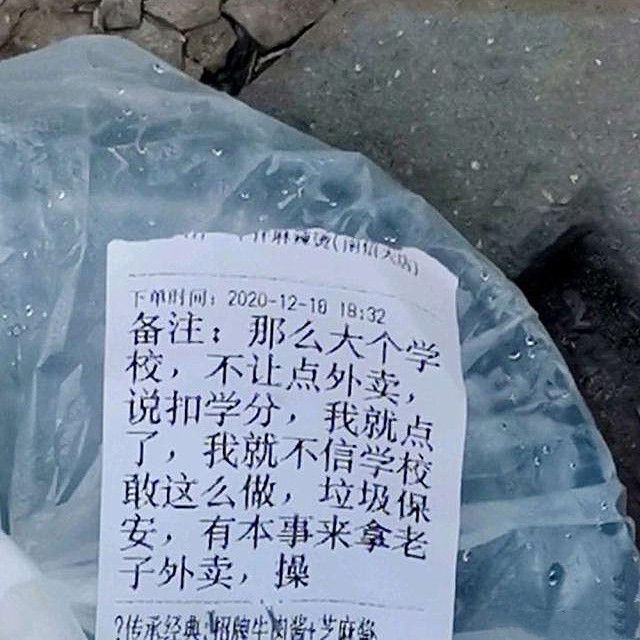 麻辣烫(南信大店)
下单时间：2020-12-10 18:32
备注：那么大个学
校，不让点外卖，
说扣学分，我就点
了，我就不信学校
敢这么做，垃圾保
安，有本事来拿老
子外卖，操
?传承经典:招牌牛肉酱+芝麻酱